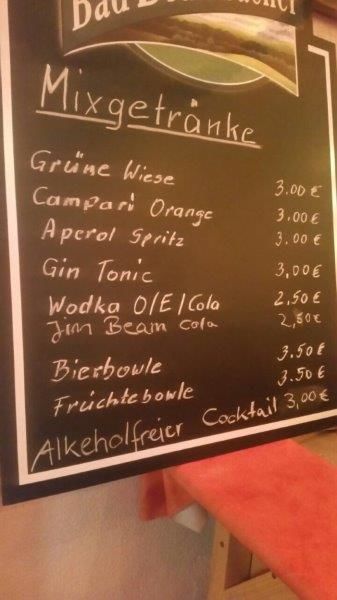 Bad
Mixgetränke
Grüne Wiese 3.00 €
Campari Orange 3.00 €
Aperol Spritz 3.00 €
Gin Tonic 3,00 €
Wodka O/E/Cola 2,50 €
Jim Beam Cola 2,50 €
Bierbowle 3.50 €
Früchtebowle 3.50 €
Alkeholfreier Cocktail 3,00 €